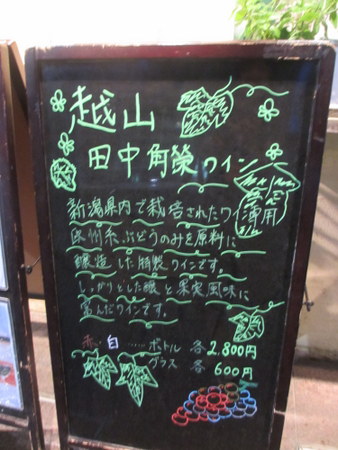 越山
田中角榮ワイン
薄用
新潟県内で栽培されたワ
欧州系ぶどうのみを原料に
醸造した特製ワインです。
しっかりとした酸と果実風味に
富んだワインです。
赤・白……ボトル 各2.800円
グラス 各600円